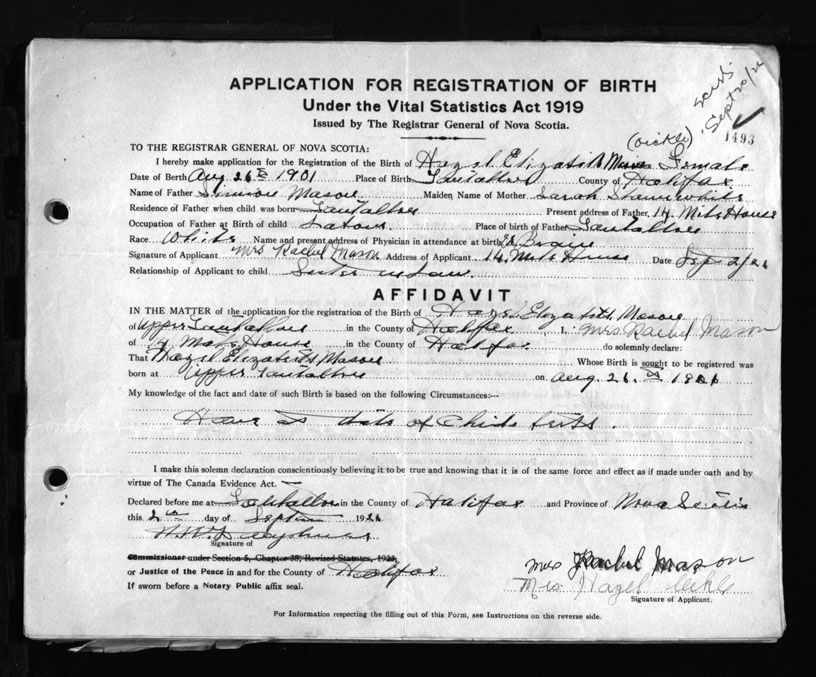 APPLICATION FOR REGISTRATION OF BIRTH
Under the Vital Statistics Act 1919
Issued by The Registrar General of Nova Scotia.
Sept 20/26
1493
TO THE REGISTRAR GENERAL OF NOVA SCOTIA:
I hereby make application for the Registration of the Birth of Hazel Elizabeth Mason Female
Date of Birth Aug 26th 1901 Place of Birth Tantallon County of Halifax
Name of Father Mason Maiden Name of Mother Sarah
Residence of Father when child was born Tantallon Present address of Father 14 Mile House
Occupation of Father at Birth of child Place of birth of Father Tantallon
Race White Name and present address of Physician in attendance at birth
Signature of Applicant Mrs Rachel Mason Address of Applicant 14 Mile House Date Sept 2/26
Relationship of Applicant to child Sister in Law
AFFIDAVIT
IN THE MATTER of the application for the registration of the Birth of Hazel Elizabeth Mason
of Upper Tantallon in the County of Halifax I, Mrs Rachel Mason
of 14 Mile House in the County of Halifax do solemnly declare:
That Hazel Elizabeth Mason Whose Birth is sought to be registered was
born at Upper Tantallon on Aug. 26th
My knowledge of the fact and date of such Birth is based on the following Circumstances:—
of Childs
I make this solemn declaration conscientiously believing it to be true and knowing that it is of the same force and effect as if made under oath and by
virtue of The Canada Evidence Act.
Declared before me at Tantallon in the County of Halifax and Province of Nova Scotia
this 2nd day of 1926
Signature of
Commissioner under Section 5, Chapter 38, Revised Statutes, 1923,
or Justice of the Peace in and for the County of Halifax
If sworn before a Notary Public affix seal.
Mrs Rachel Mason
Mrs Hazel
Signature of Applicant.
For Information respecting the filling out of this Form, see Instructions on the reverse side.